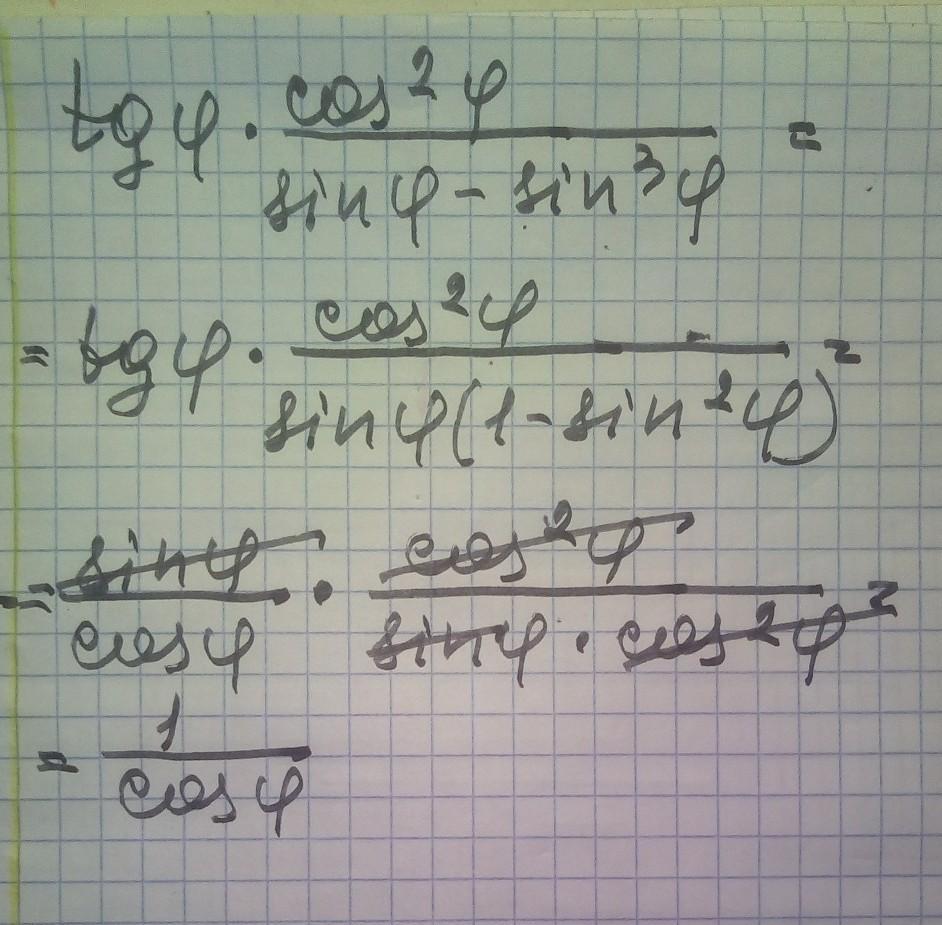 tg φ · cos²φ / (sin φ - sin³φ) =
= tg φ · cos²φ / (sin φ(1 - sin²φ)) =
= sin φ / cos φ · cos²φ / (sin φ · cos²φ) =
= 1 / cos φ